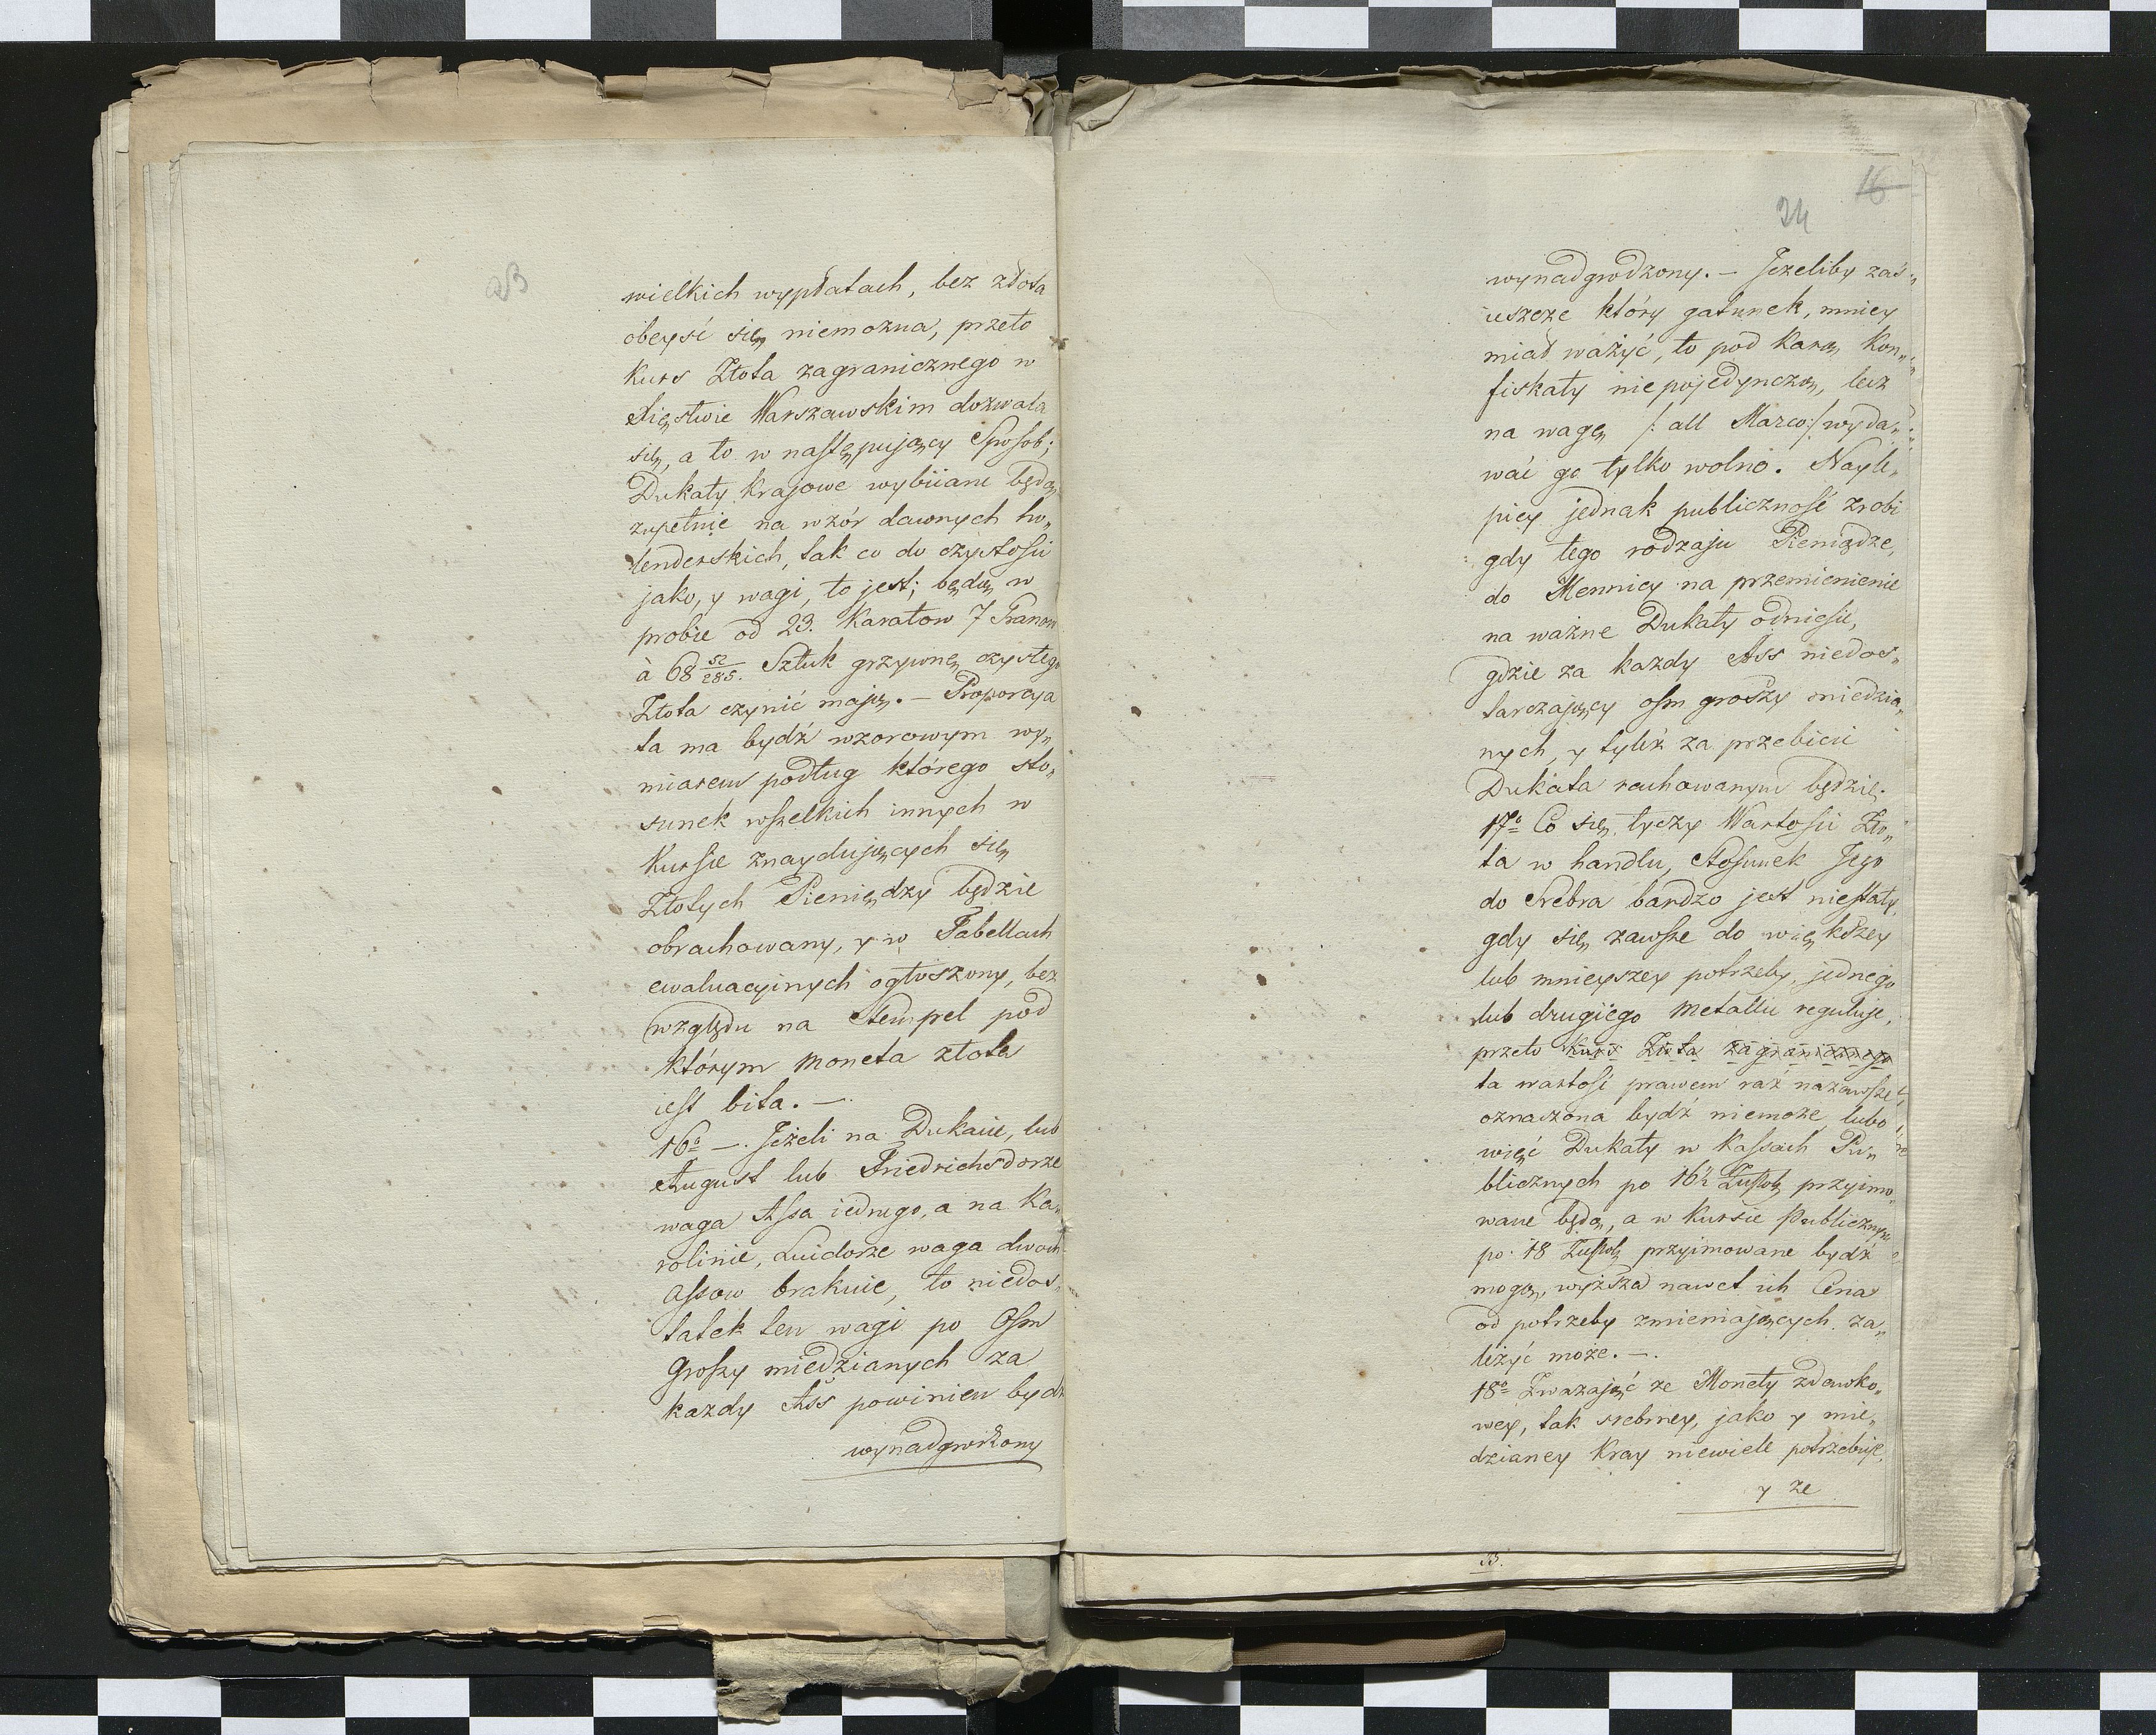 23
wielkich wypłatach, bez złota
obeyść się niemożna, przeto
Kurs Złota zagranicznego w
Xięstwie Warszawskim dozwala
się, a to w następujący Sposob;
Dukaty Krajowe wybiiane będą
zupełnie na wzór dawnych ho„
lenderskich, tak co do czystości
jako, y wagi, to jest; będą w
probie od 23. Karatow 7 Granow
à 68 52/285. Sztuk grzywnę czystego
Złota czynić mają. — Proporcya
ta ma bydź wzorowym wy„
miarem podług którego sto„
sunek wszelkich innych w
Kursie znaydujących się
Złotych Pieniędzy będzie
obrachowany, y w Tabellach
ewaluacyinych ogłoszony, bez
względu na Stempel pod
którym moneta złota
iest bita. —.
16o —. Jeżeli na Dukacie, lub
August lub Friedrichsdorze
waga Assa iednego, a na Ka„
rolinie, Luidorze waga dwoch
Assow brakuie, to niedos„
tatek ten wagi po Osm
Groszy miedzianych za
każdy Ass powinien bydź
wynadgrodzony
16
24
wynadgrodzony. — Jeżeliby zaś
ieszcze który gatunek, mniey
miał ważyć, to pod Karą Kon„
fiskaty nie pojedynczo, lecz
na wagę /: all Marco :/ wyda„
wać go tylko wolno. Nayle„
piey jednak publiczność zrobi
gdy tego rodzaju Pieniądze,
do Mennicy na przemienienie
na ważne Dukaty odniesie,
gdzie za każdy Ass niedos„
tarczający osm groszy miedzia„
nych, y tyleż za przebicie
Dukata rachowanym będzie.
17o Co się tyczy Wartości Zło„
ta w handlu, Stosunek Jego
do Srebra bardzo jest niestały,
gdy się zawsze do większey
lub mnieyszey potrzeby, jednego
lub drugiego Metallu reguluje,
przeto Kurs Złota zagranicznego
ta wartość prawem raz nazawsze
oznaczona bydź niemoże, lubo
więc Dukaty w Kassach Pu„
blicznych po 16½ przyimo„
wane będą, a w Kursie Publicznym
po 18 przyimowane bydź
mogą, wyższa nawet ich Cena
od potrzeby zmieniających za„
leżyć może. —.
18o Zważając ze Monety zdawko„
wey, tak srebrney, jako y mie„
dzianey Kray niewiele potrzebuje,
y ze